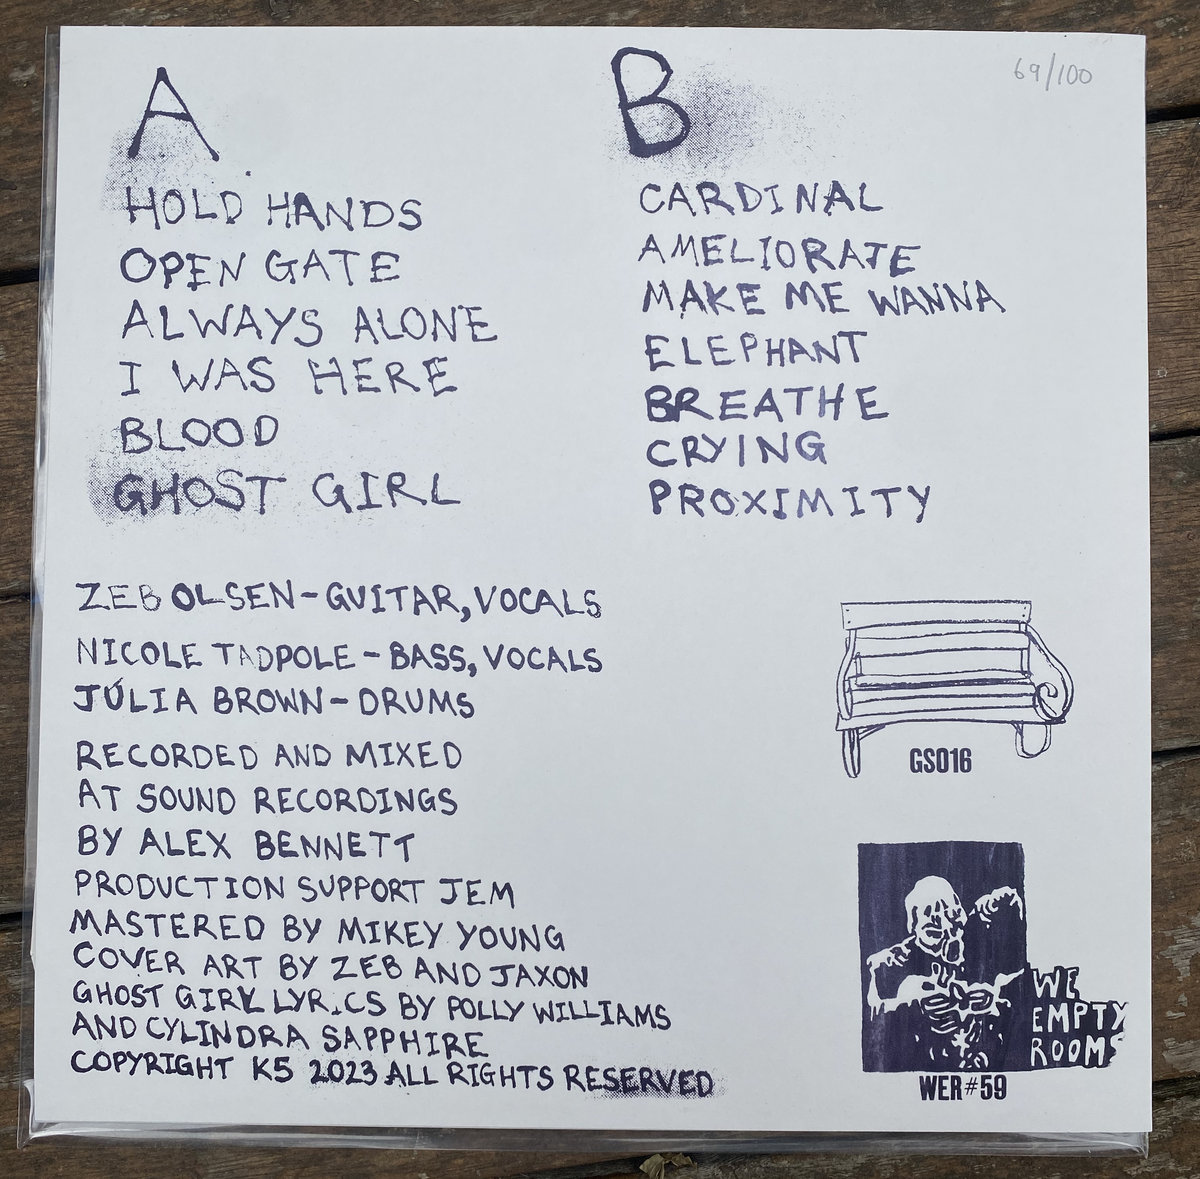 A
HOLD HANDS
OPEN GATE
ALWAYS ALONE
I WAS HERE
BLOOD
GHOST GIRL
B
CARDINAL
AMELIORATE
MAKE ME WANNA
ELEPHANT
BREATHE
CRYING
PROXIMITY
69/100
ZEB OLSEN-GUITAR, VOCALS
NICOLE TADPOLE-BASS, VOCALS
JÚLIA BROWN-DRUMS
RECORDED AND MIXED
AT SOUND RECORDINGS
BY ALEX BENNETT
PRODUCTION SUPPORT JEM
MASTERED BY MIKEY YOUNG
COVER ART BY ZEB AND JAXON
GHOST GIRL LYRICS BY POLLY WILLIAMS
AND CYLINDRA SAPPHIRE
COPYRIGHT K5 2023 ALL RIGHTS RESERVED
GS016
WE
EMPTY
ROOMS
WER#59